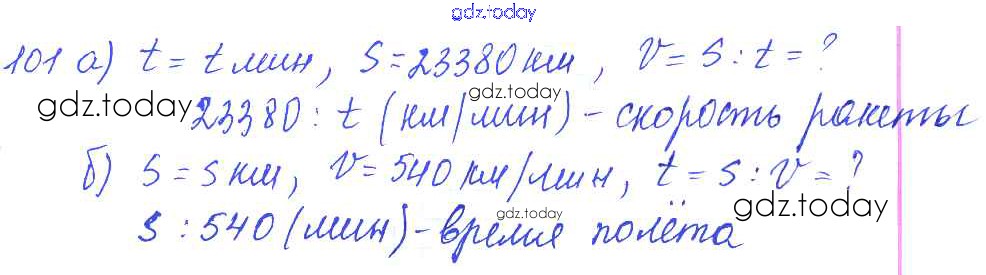 gdz.today
101 а) t = t мин, S = 23380 км, V = S : t = ?
gdz.today
gdz.today
23380 : t (км/мин) - скорость ракеты
б) S = S км, V = 540 км/мин, t = S : V = ?
gdz.today
gdz.today
S : 540 (мин) - время полёта